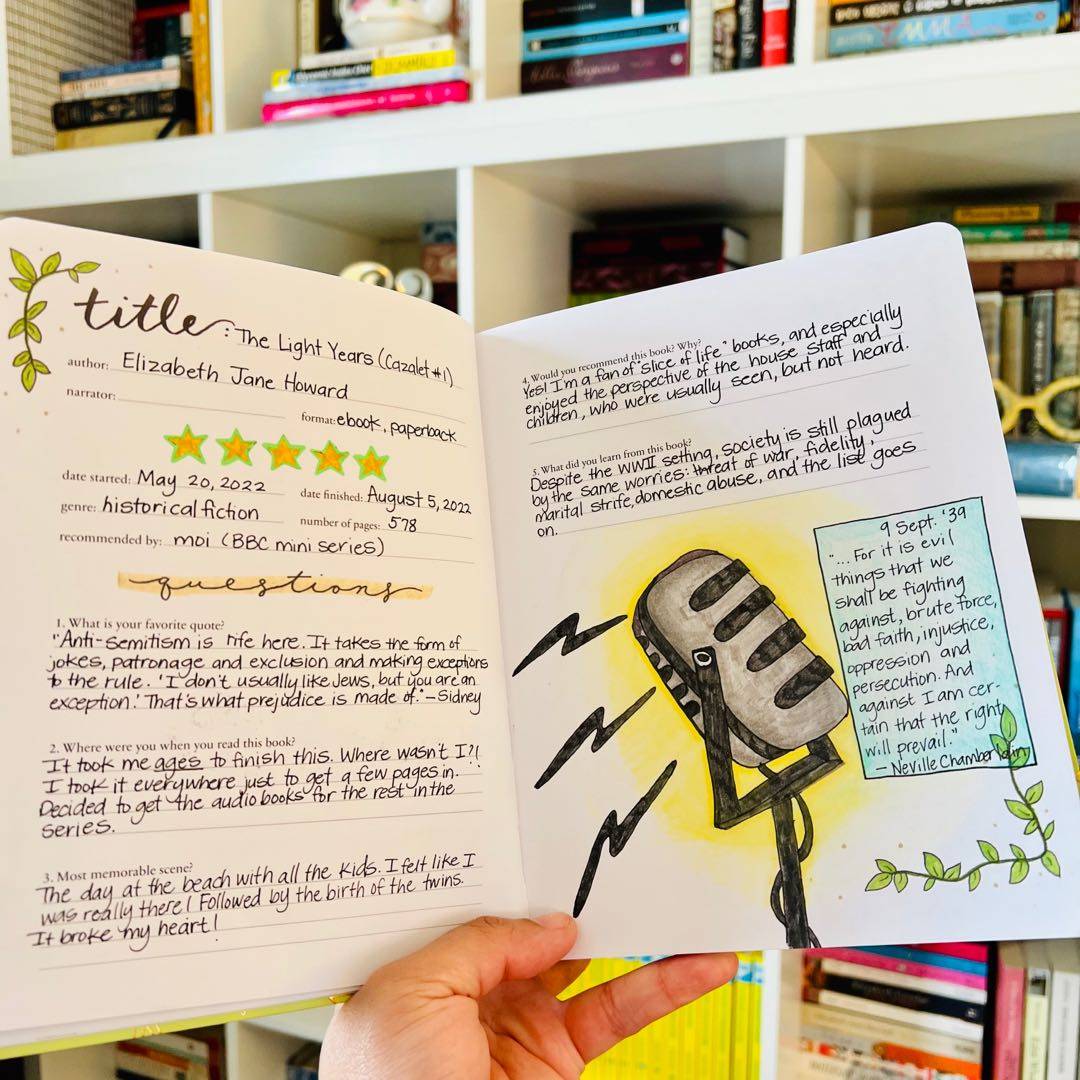 title: The Light Years (Cazalet #1)
author: Elizabeth Jane Howard
narrator:
format: ebook, paperback
date started: May 20, 2022
date finished: August 5, 2022
genre: historical fiction
number of pages: 578
recommended by: moi (BBC mini series)
questions
1. What is your favorite quote?
"Anti-semitism is rife here. It takes the form of
jokes, patronage and exclusion and making exceptions
to the rule. 'I don't usually like Jews, but you are an
exception.' That's what prejudice is made of." - Sidney
2. Where were you when you read this book?
It took me ages to finish this. Where wasn't I?!
I took it everywhere just to get a few pages in.
Decided to get the audiobooks for the rest in the
series.
3. Most memorable scene?
The day at the beach with all the kids. I felt like I
was really there! Followed by the birth of the twins.
It broke my heart!
4. Would you recommend this book? Why?
Yes! I'm a fan of "slice of life" books, and especially
enjoyed the perspective of the house staff and
children, who were usually seen, but not heard.
5. What did you learn from this book?
Despite the WWII setting, society is still plagued
by the same worries: threat of war, fidelity,
marital strife, domestic abuse, and the list goes
on.
9 Sept. '39
"... For it is evil
things that we
shall be fighting
against, brute force,
bad faith, injustice,
oppression and
persecution. And
against I am cer-
tain that the right
will prevail."
- Neville Chamberlain